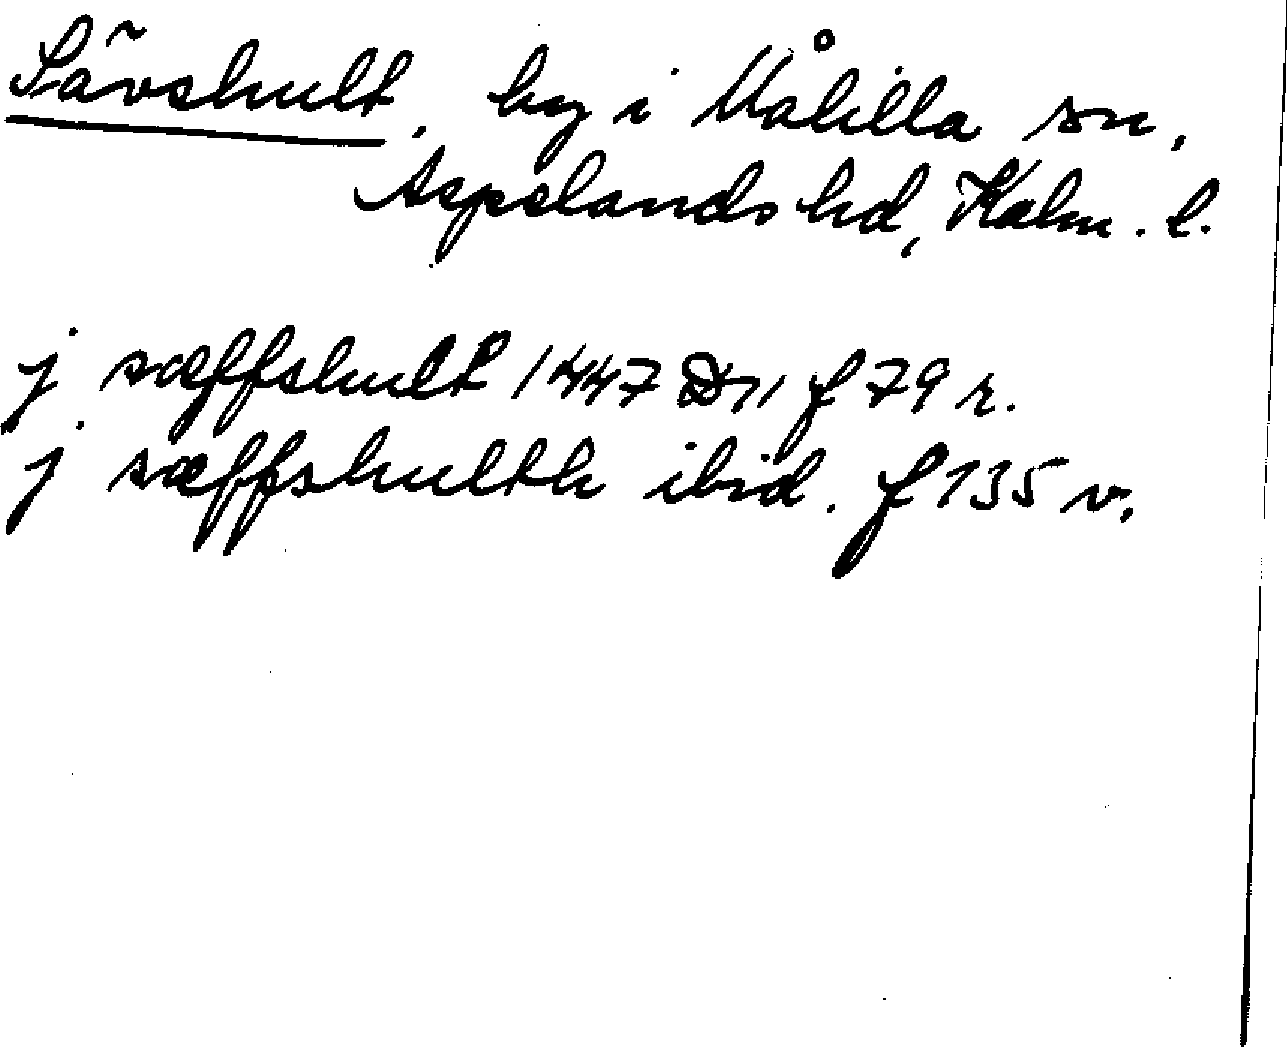 Sävshult, by i Målilla sn,
Aspelands hd, Kalm. l.
j sæffshult 1447 D11 f 79 r.
j sæffshulth ibid. f 135 v.